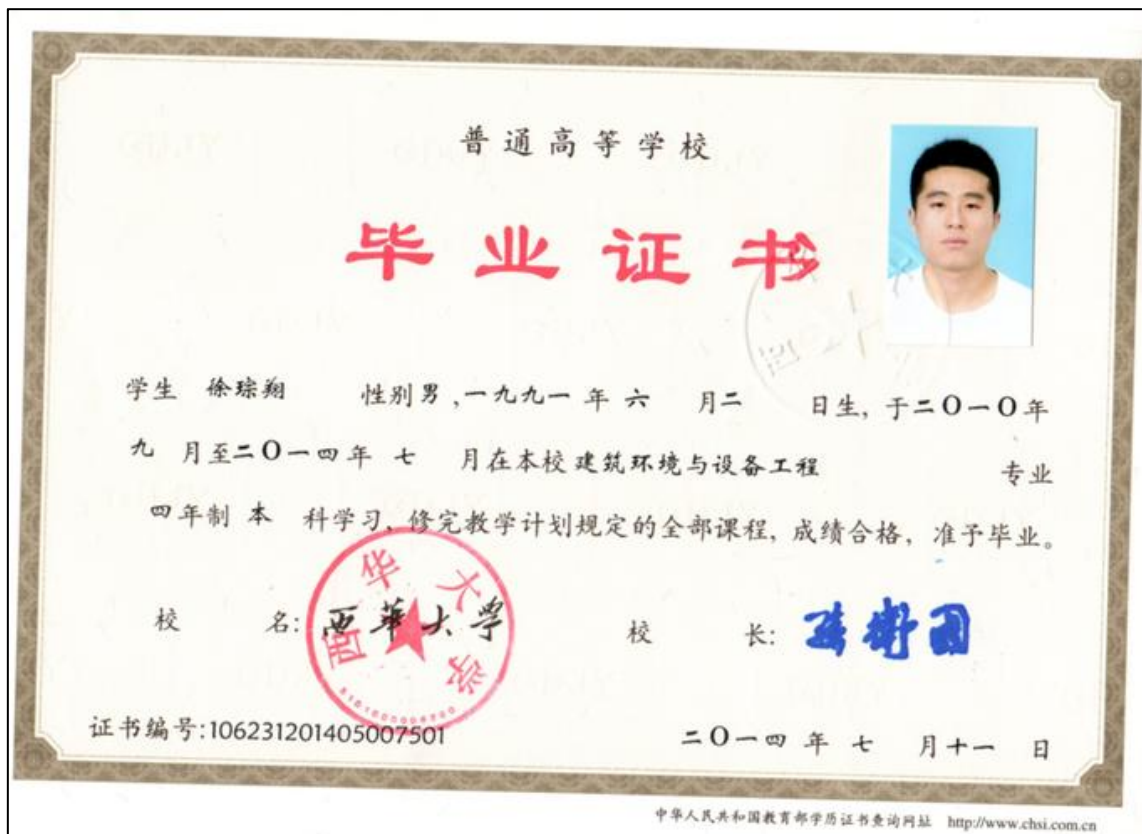 普通高等学校
毕业证书
学生 徐琮翔 性别男,一九九一年六月二日生,于二〇一〇年
九月至二〇一四年七月在本校建筑环境与设备工程专业
四年制本科学习、修完教学计划规定的全部课程,成绩合格,准予毕业。
校名:西華大学 校长:
西华大学
证书编号:106231201405007501 二〇一四年七月十一日
中华人民共和国教育部学历证书查询网址 http://www.chsi.com.cn